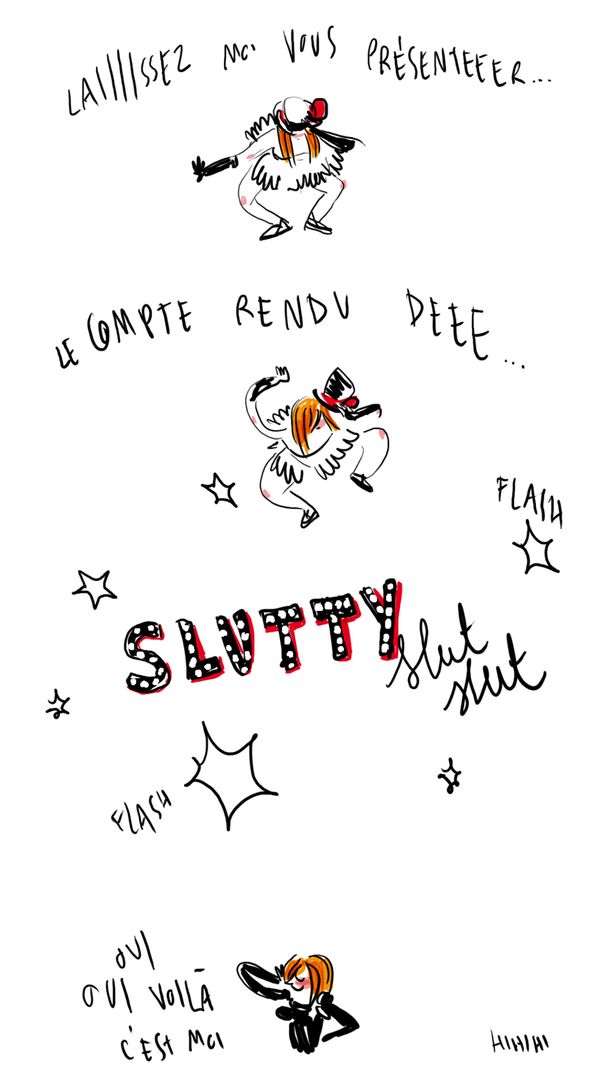 LAIIIISSEZ MOI VOUS PRÉSENTEEER...
LE COMPTE RENDU DEEE...
FLASH
SLUTTY
slut
slut
FLASH
OUI
OUI VOILĀ
C'EST MOI
HIHIHI